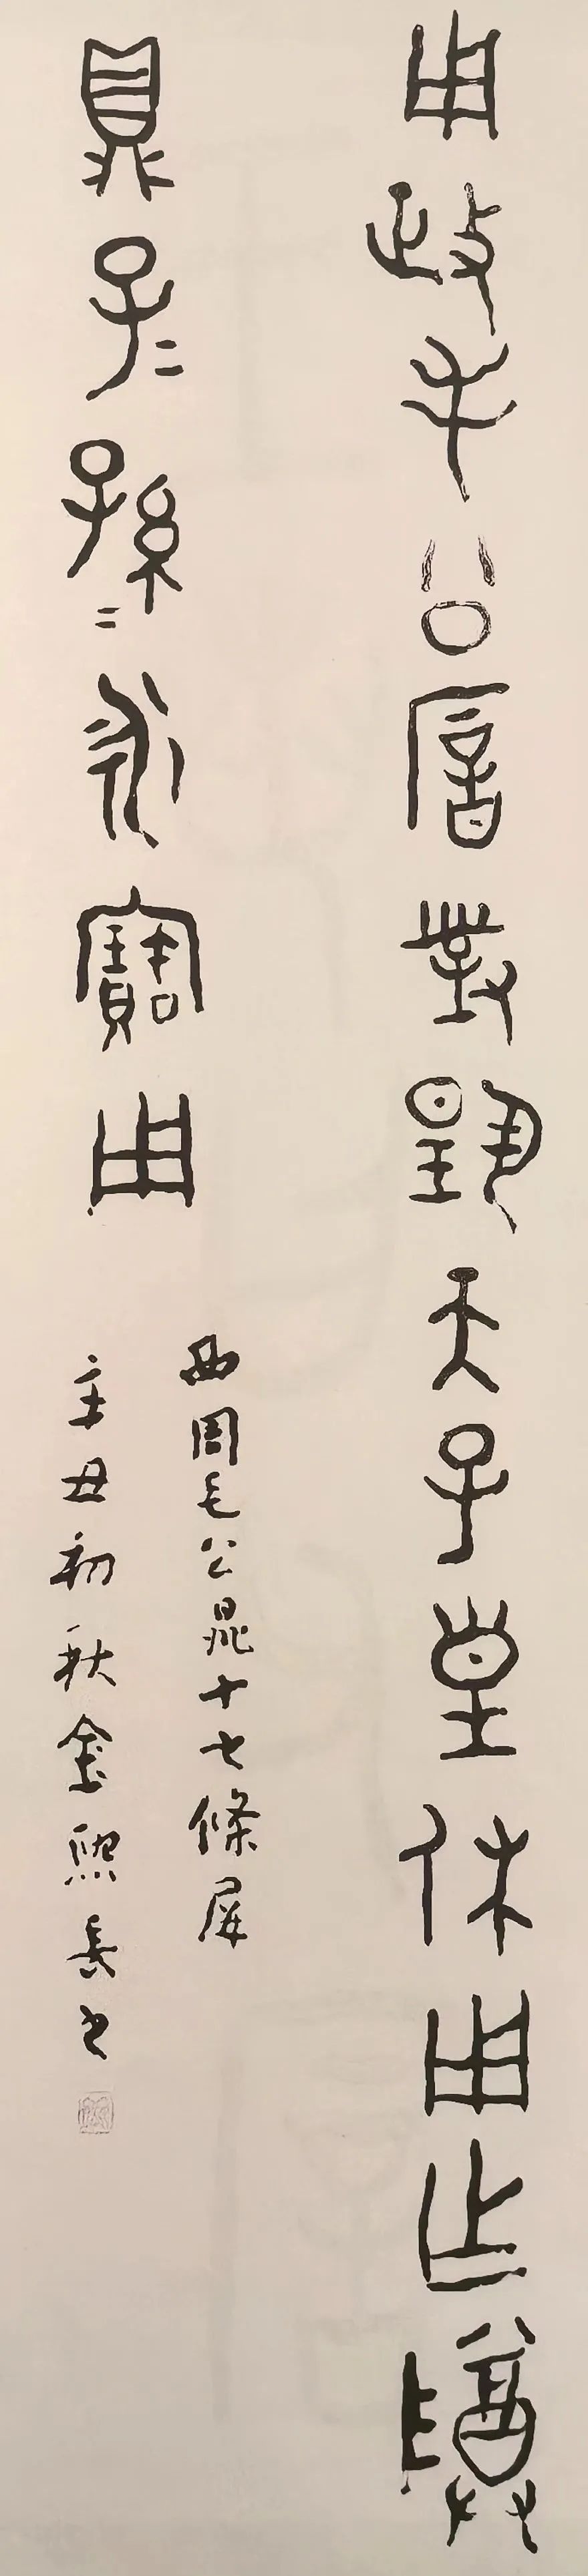 用政毛公㾕對𩁹天子皇休用乍尊
鼎子=孫=永寶用
西周毛公鼎十七條屏
辛丑初秋金熙長书